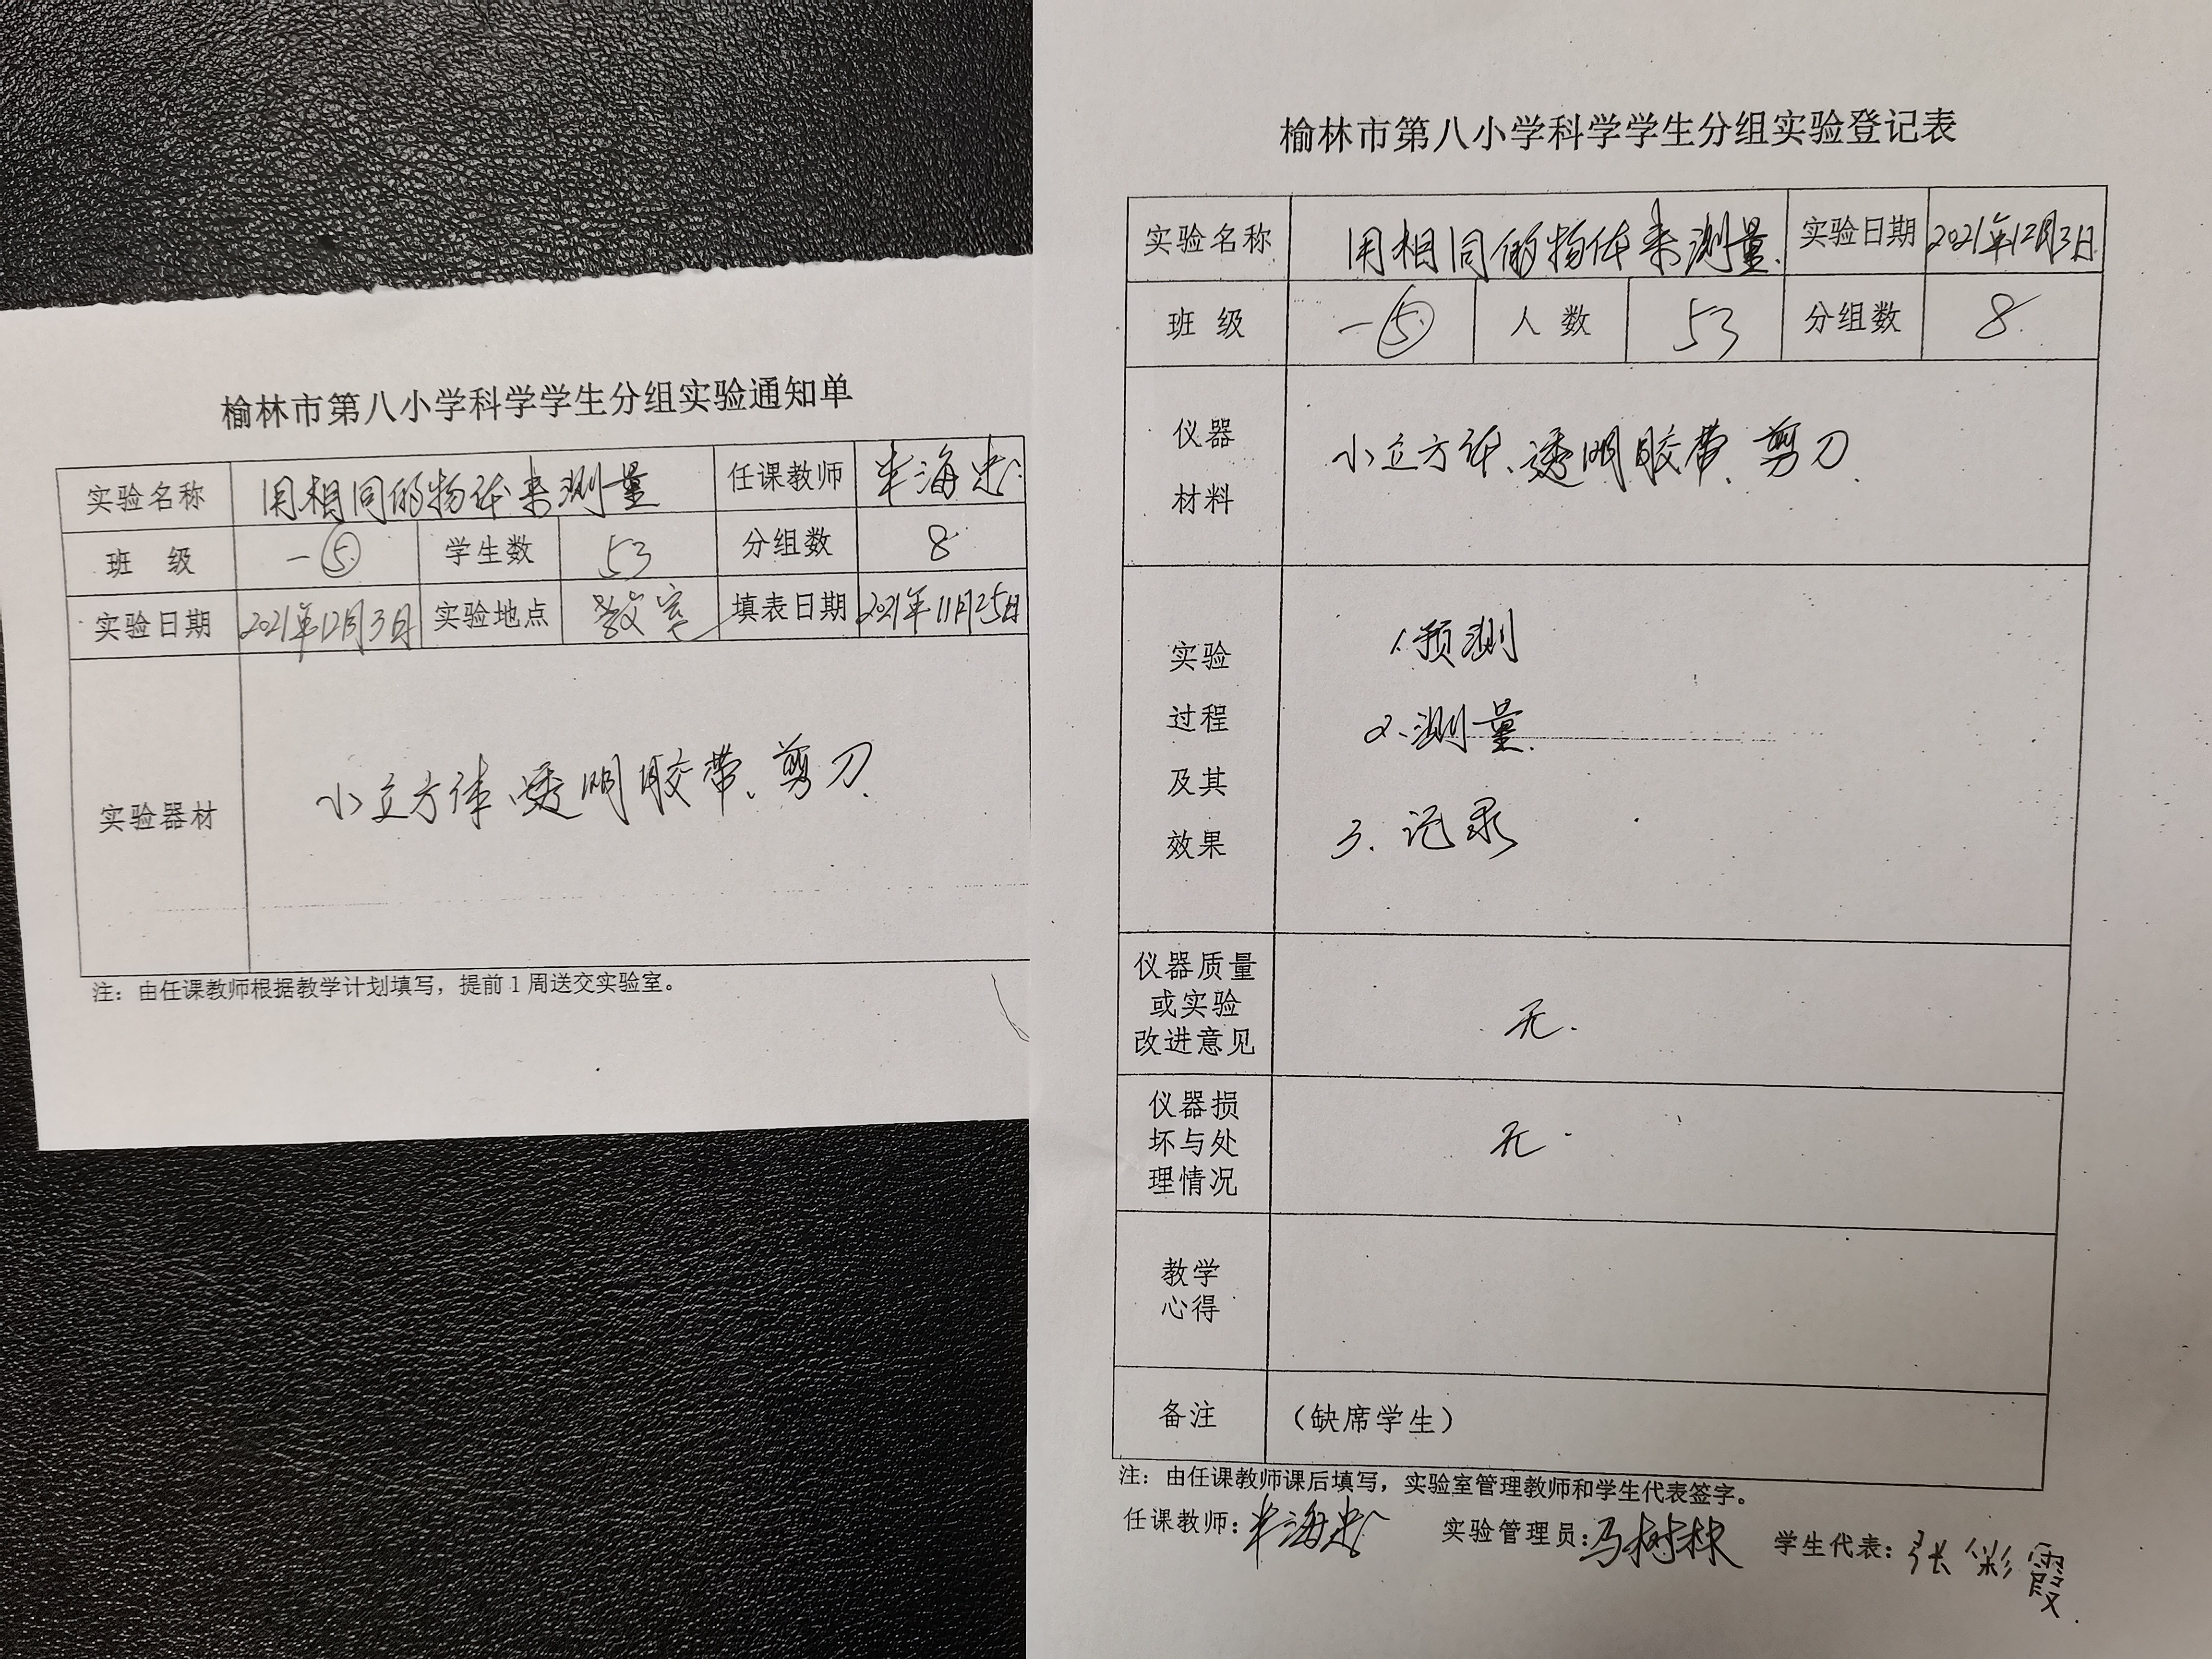 榆林市第八小学科学学生分组实验通知单
实验名称 用相同的物体来测量 任课教师 海忠
班 级 一⑤ 学生数 53 分组数 8
实验日期 2021年12月3日 实验地点 教室 填表日期 2021年11月25日
实验器材 小立方体、透明胶带、剪刀.
注：由任课教师根据教学计划填写，提前1周送交实验室。
榆林市第八小学科学学生分组实验登记表
实验名称 用相同的物体来测量. 实验日期 2021年12月3日
班 级 一⑤ 人 数 53 分组数 8.
仪器
材料
小立方体、透明胶带、剪刀.
实验
过程
及其
效果
1.预测
2.测量.
3.记录
仪器质量
或实验
改进意见
无.
仪器损
坏与处
理情况
无.
教学
心得
备注 （缺席学生）
注：由任课教师课后填写，实验室管理教师和学生代表签字。
任课教师: 海忠 实验管理员: 马树林 学生代表: 张彩霞.